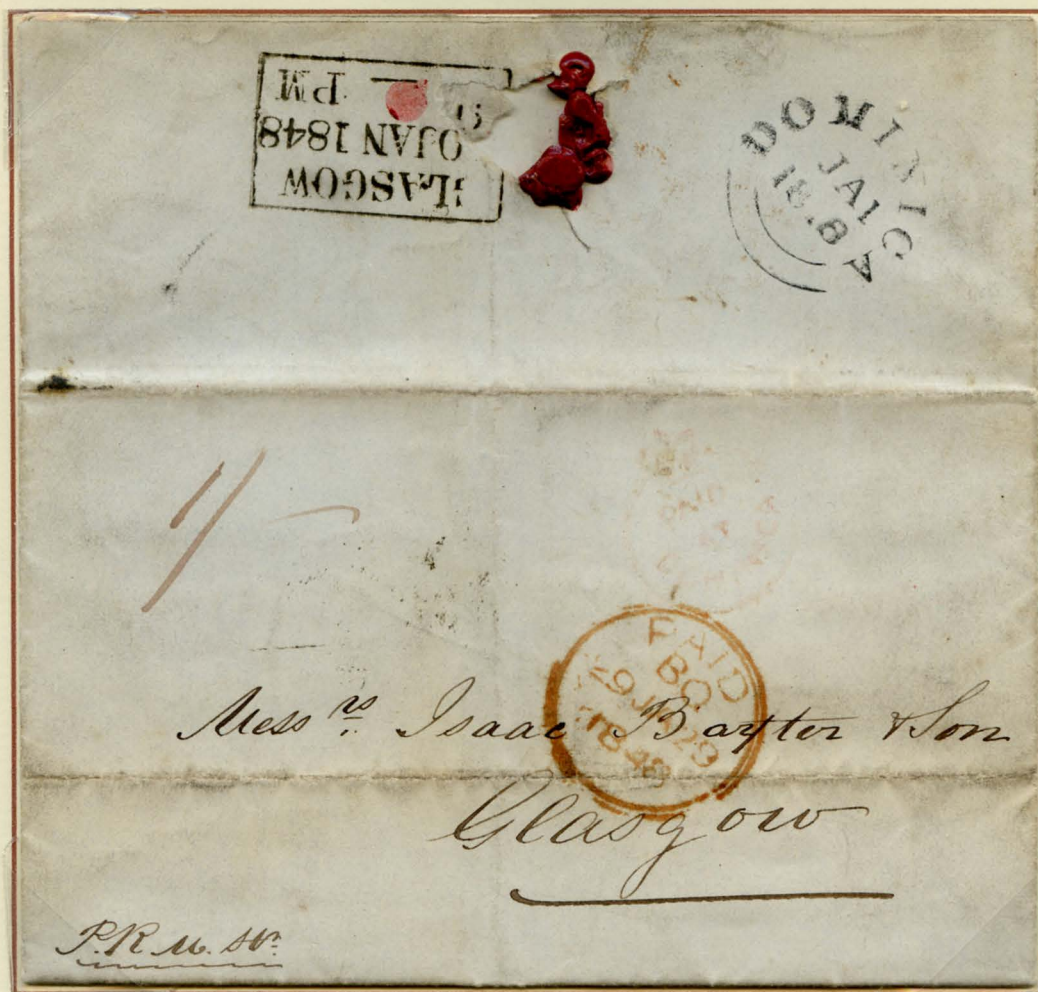 GLASGOW
0 JAN 1848
PM
DOMINICA
JA 1
18.8
1/
PAID
BO
29 JA 29
1848
Mess.rs Isaac Baxter & Son
Glasgow
P. R. M. Str.